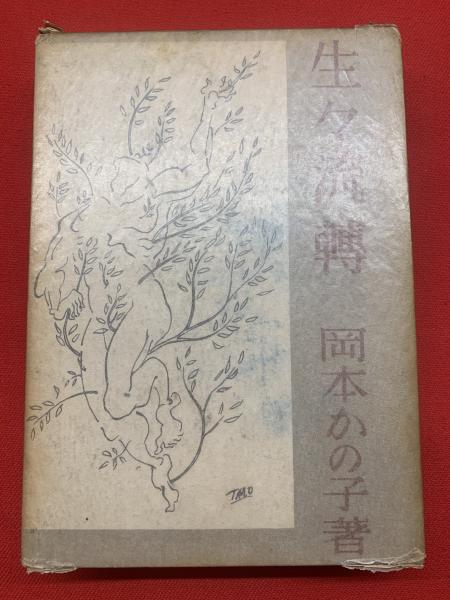 生々流轉
岡本かの子著
TARO